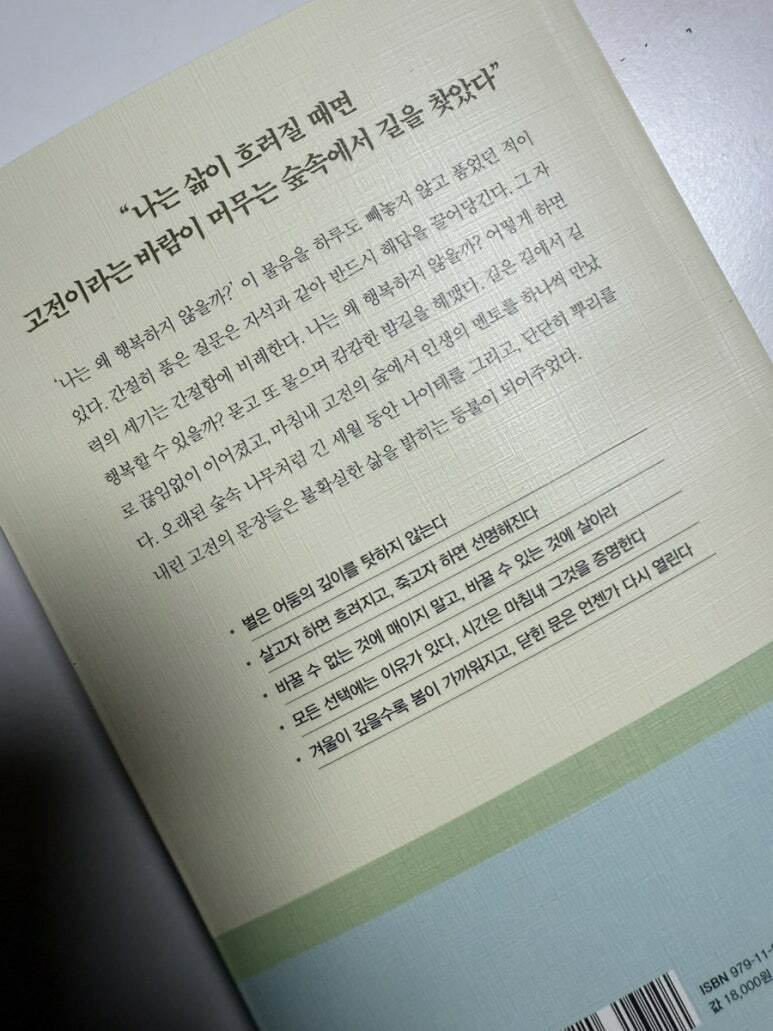 “나는 삶이 흐려질 때면
고전이라는 바람이 머무는 숲속에서 길을 찾았다”
‘나는 왜 행복하지 않을까?’ 이 물음을 하루도 빼놓지 않고 품었던 적이
있다. 간절히 품은 질문은 자석과 같아 반드시 해답을 끌어당긴다. 그 자
력의 세기는 간절함에 비례한다. 나는 왜 행복하지 않을까? 어떻게 하면
행복할 수 있을까? 묻고 또 물으며 캄캄한 밤길을 헤맸다. 길은 길에서 길
로 끊임없이 이어졌고, 마침내 고전의 숲에서 인생의 멘토를 하나씩 만났
다. 오래된 숲속 나무처럼 긴 세월 동안 나이테를 그리고, 단단히 뿌리를
내린 고전의 문장들은 불확실한 삶을 밝히는 등불이 되어주었다.
• 별은 어둠의 깊이를 탓하지 않는다
• 살고자 하면 흐려지고, 죽고자 하면 선명해진다
• 바꿀 수 없는 것에 매이지 말고, 바꿀 수 있는 것에 살아라
• 모든 선택에는 이유가 있다, 시간은 마침내 그것을 증명한다
• 겨울이 깊을수록 봄이 가까워지고, 닫힌 문은 언젠가 다시 열린다
ISBN 979-11-
값 18,000원